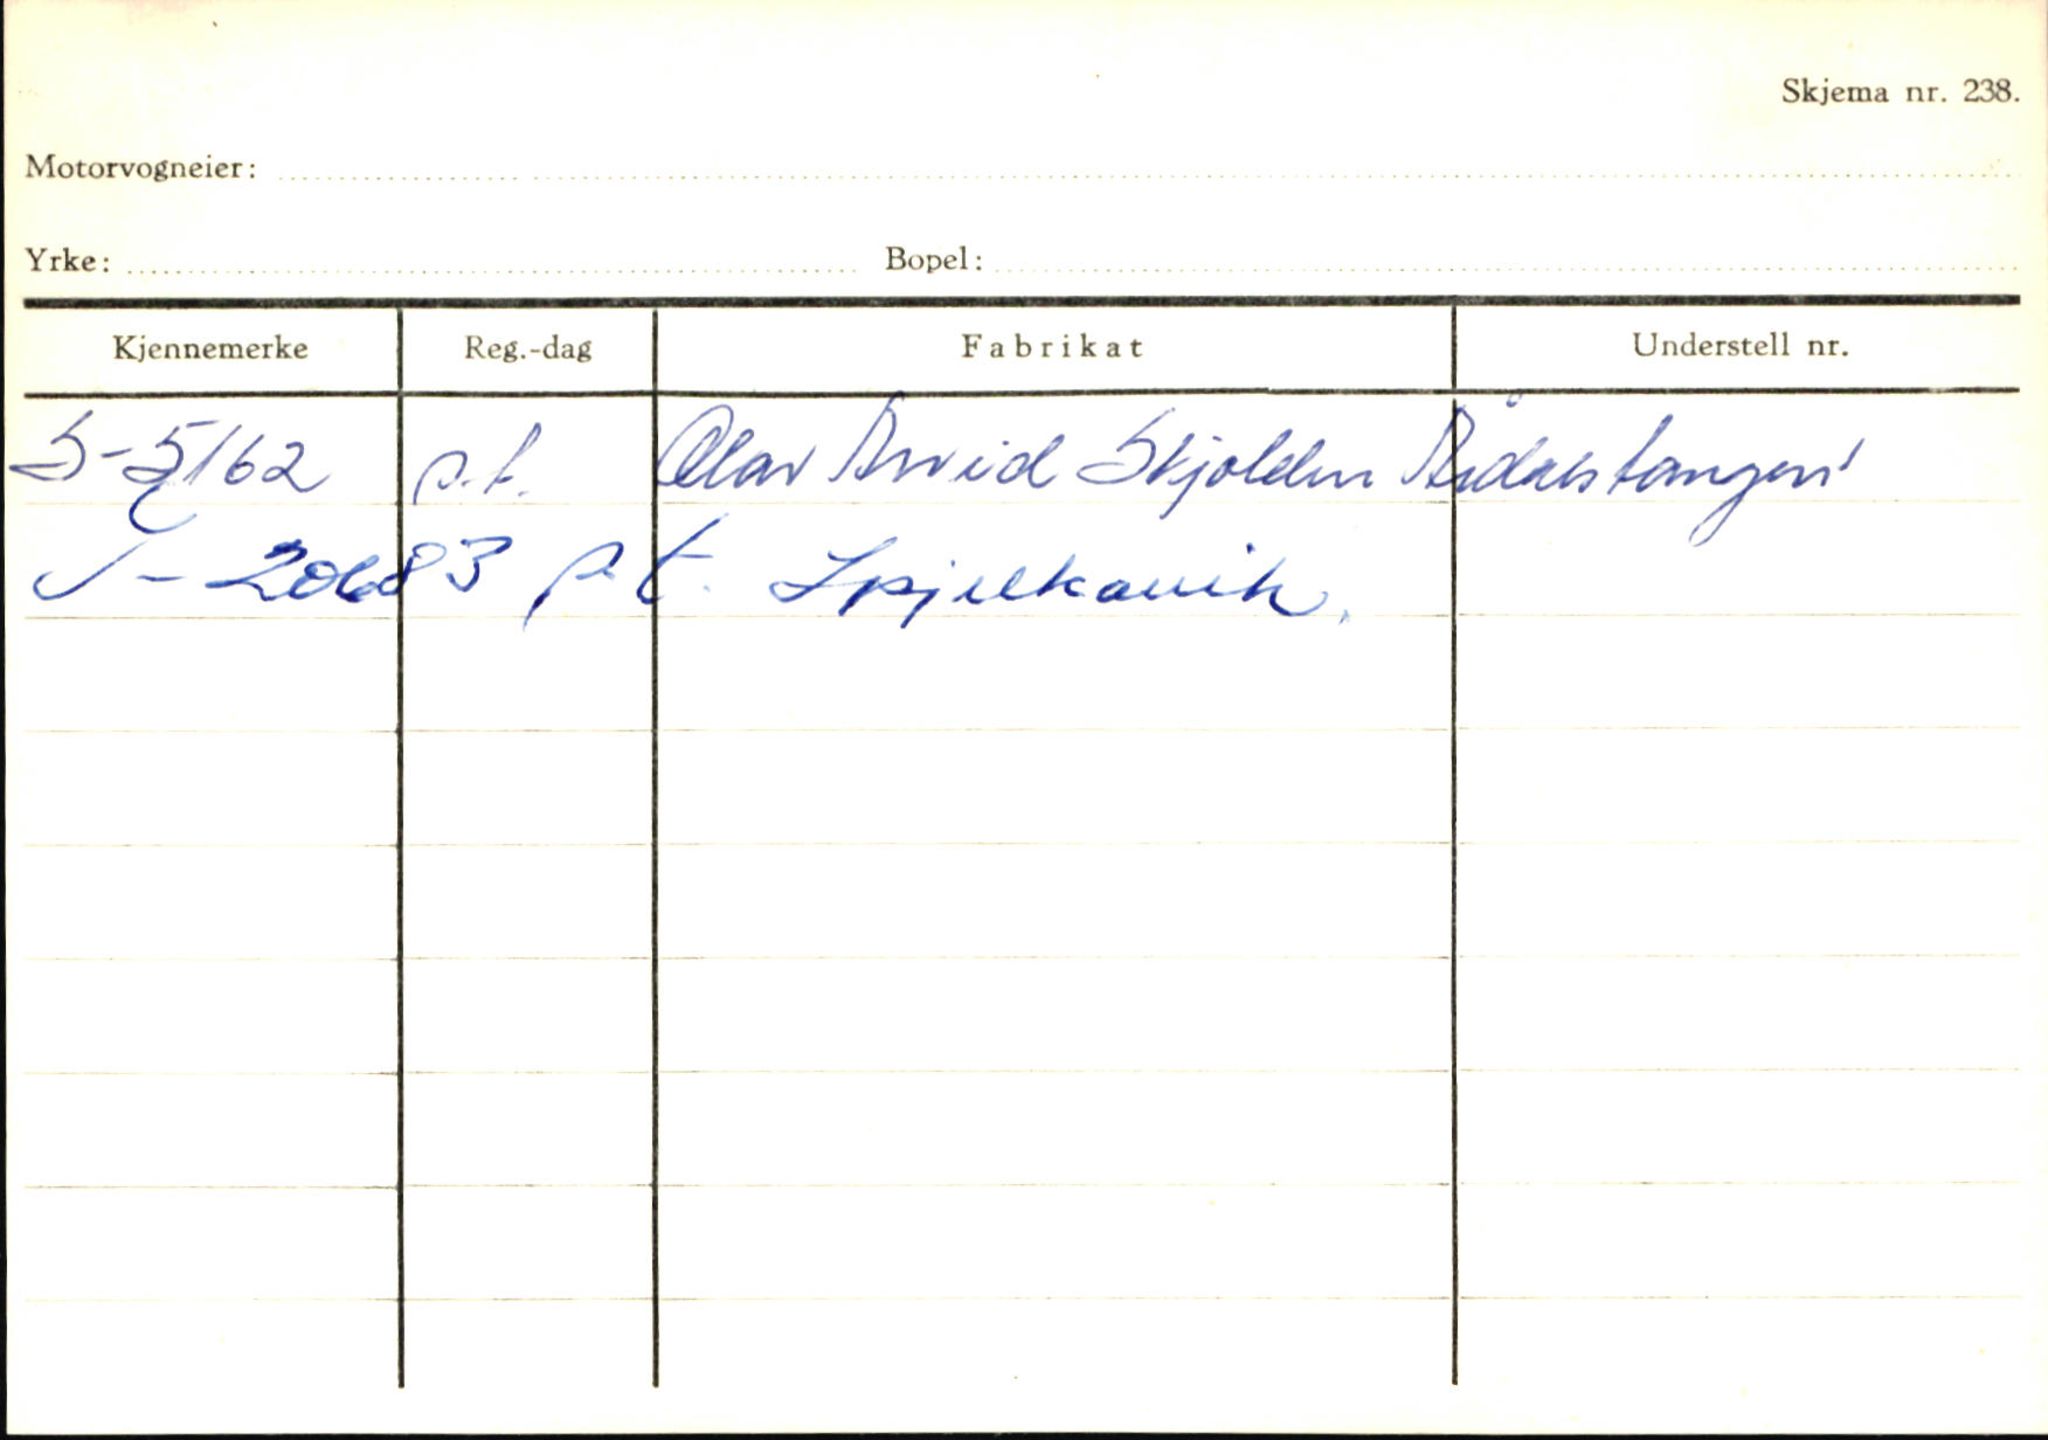 Skjema nr. 238.
Motorvogneier:
Yrke: Bopel:
Kjennemerke Reg.-dag Fabrikat Understell nr.
S-5162 p.t. Olav Arvid Skjolden Årdalstangen
S-20683 p.t. Spjelkavik.